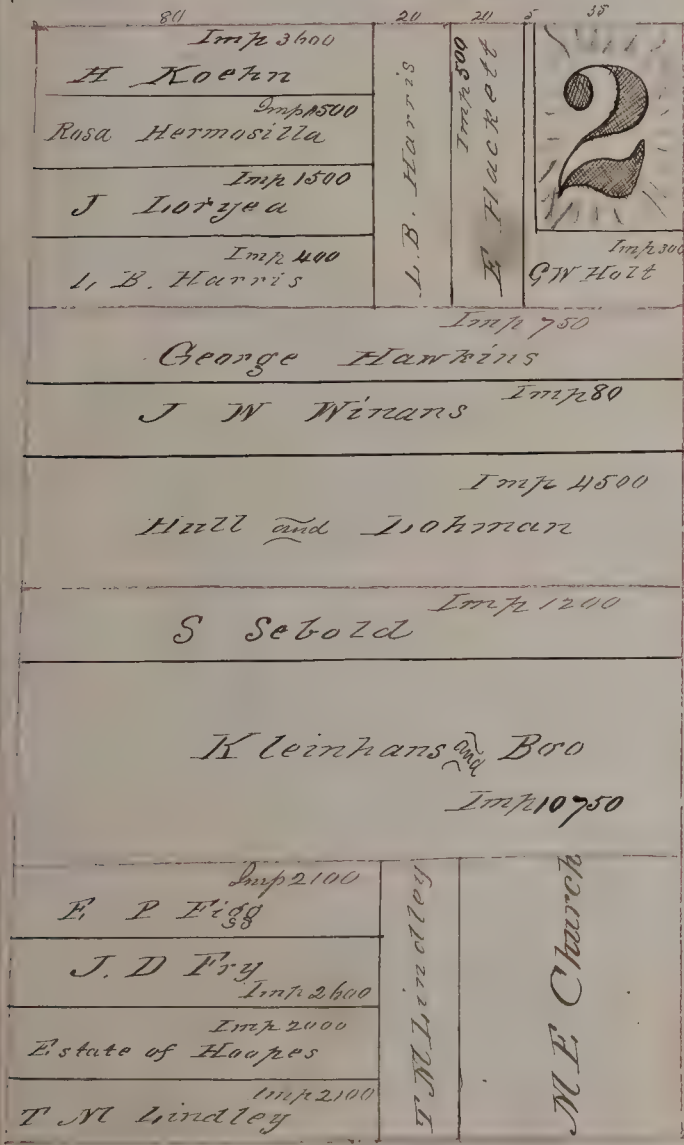 80 20 20 5 35
Imp 3600
H Koehn
Imp 1500
Rosa Hermosilla
Imp 1500
J Loryea
Imp 400
L. B. Harris
L. B. Harris
Imp 500
E Hackett
2
Imp 300
G W Holt
Imp 750
George Hawkins
Imp 80
J W Winans
Imp 4500
Hull and Lohman
Imp 1200
S Sebold
Kleinhans and Boo
Imp 10750
Imp 2100
E P Figg
J. D Fry
Imp 2600
Imp 2000
Estate of Hoopes
Imp 2100
T M Lindley
T M Lindley
M E Church